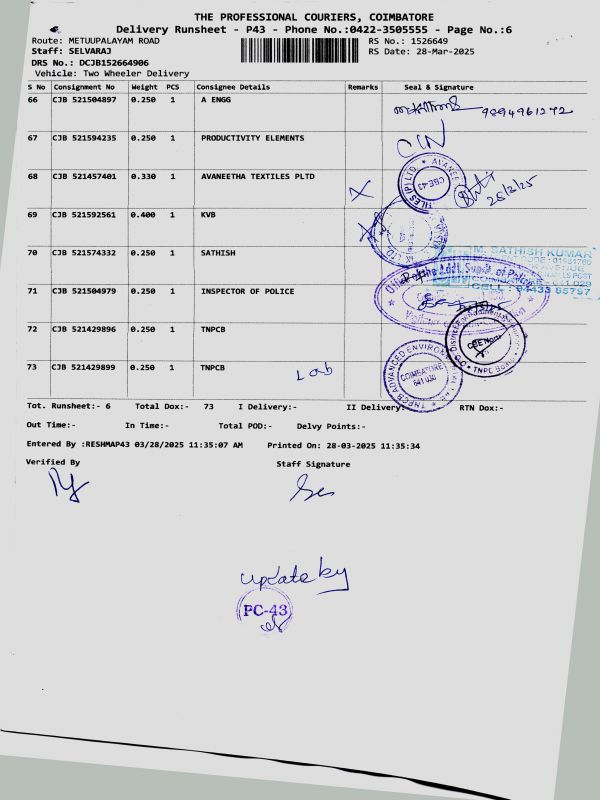 THE PROFESSIONAL COURIERS, COIMBATORE
Delivery Runsheet - P43 - Phone No.:0422-3505555 - Page No.:6
Route: METUUPALAYAM ROAD RS No.: 1526649
Staff: SELVARAJ RS Date: 28-Mar-2025
DRS No.: DCJB152664906
Vehicle: Two Wheeler Delivery
S No Consignment No Weight PCS Consignee Details Remarks Seal & Signature
66 CJB 521504897 0.250 1 A ENGG 9894961272
67 CJB 521594235 0.250 1 PRODUCTIVITY ELEMENTS
68 CJB 521457401 0.330 1 AVANEETHA TEXTILES PLTD
CBE-43
28/3/25
69 CJB 521592561 0.400 1 KVB
70 CJB 521574332 0.250 1 SATHISH
M. SATHISH KUMAR
71 CJB 521504979 0.250 1 INSPECTOR OF POLICE
Office of the Addl. Supdt. of Police
72 CJB 521429896 0.250 1 TNPCB
CBE North
73 CJB 521429899 0.250 1 TNPCB Lab
TNPCB ADVANCED ENVIRONMENTAL LAB
COIMBATORE
641 030
Tot. Runsheet:- 6 Total Dox:- 73 I Delivery:- II Delivery:- RTN Dox:-
Out Time:- In Time:- Total POD:- Delvy Points:-
Entered By :RESHMAP43 03/28/2025 11:35:07 AM Printed On: 28-03-2025 11:35:34
Verified By Staff Signature
update by
PC-43